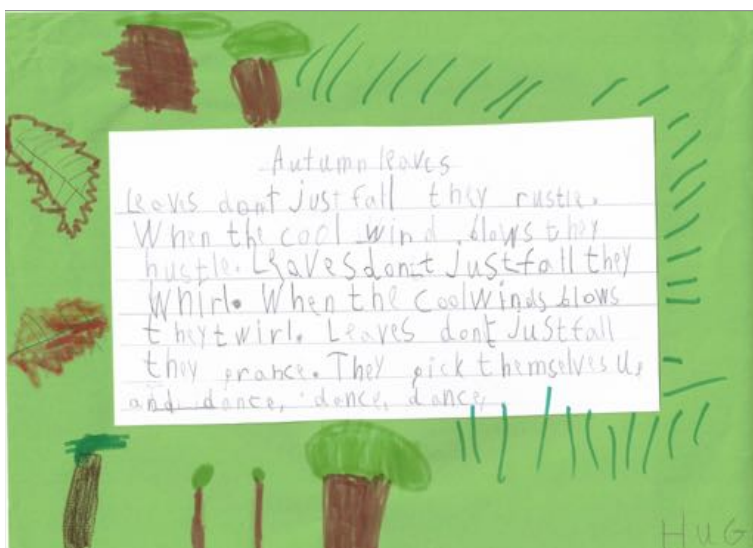 Autumn leaves
Leaves dont just fall they rustle.
When the cool wind blows they
hustle. Leaves don't just fall they
Whirl. When the cool winds blows
they twirl. Leaves dont Just fall
they prance. They pick themselves u,
and dance, dance, dance,
HUG